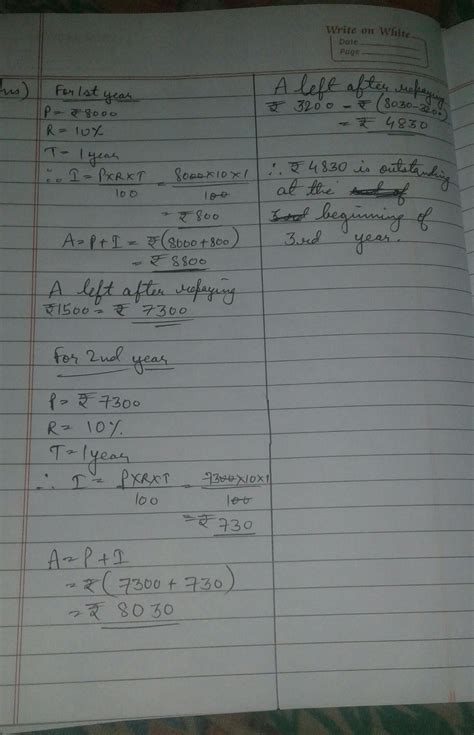 Write on White
Date
Page
Ans)
For 1st year
P = ₹ 8000
R = 10%
T = 1 year
∴ I = PXRXT/100 = 8000×10×1/100
= ₹ 800
A = P + I = ₹(8000+800)
= ₹ 8800
A left after repaying
₹1500 = ₹ 7300
For 2nd year
P = ₹ 7300
R = 10%
T = 1 year
∴ I = PXRXT/100 = 7300×10×1/100
= ₹ 730
A = P + I
= ₹(7300 + 730)
= ₹ 8030
A left after repaying
₹ 3200 = ₹ (8030-3200)
= ₹ 4830
∴ ₹ 4830 is outstanding
at the
beginning of
3rd year.